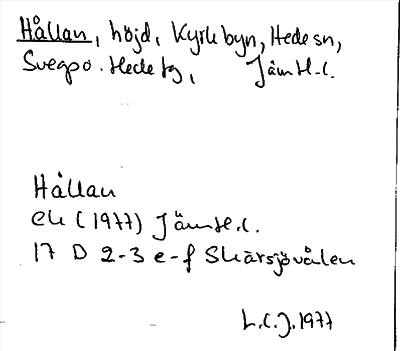 Hållan, höjd, Kyrkbyn, Hede sn,
Svegs po. Hede tg, Jämtl. l.
Hållan
ek (1977) Jämtl. l.
17 D 2-3 e-f Skärsjövålen
L.C.J. 1977